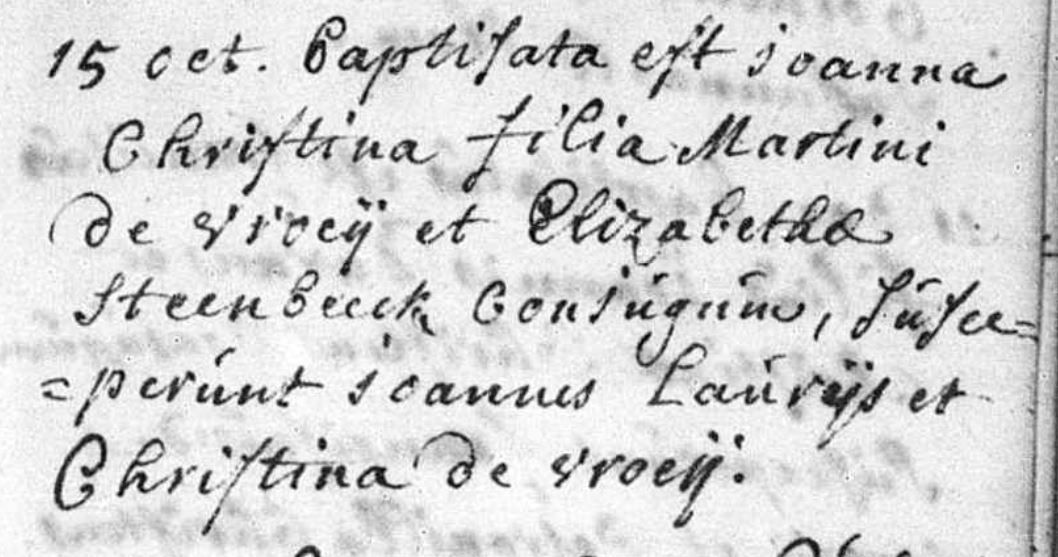 15 oct. Baptisata est ioanna
Christina filia Martini
de vroeij et Elizabetha
Steenbeeck Coniugum, susce=
=perunt ioannes Laurijs et
Christina de vroeij.